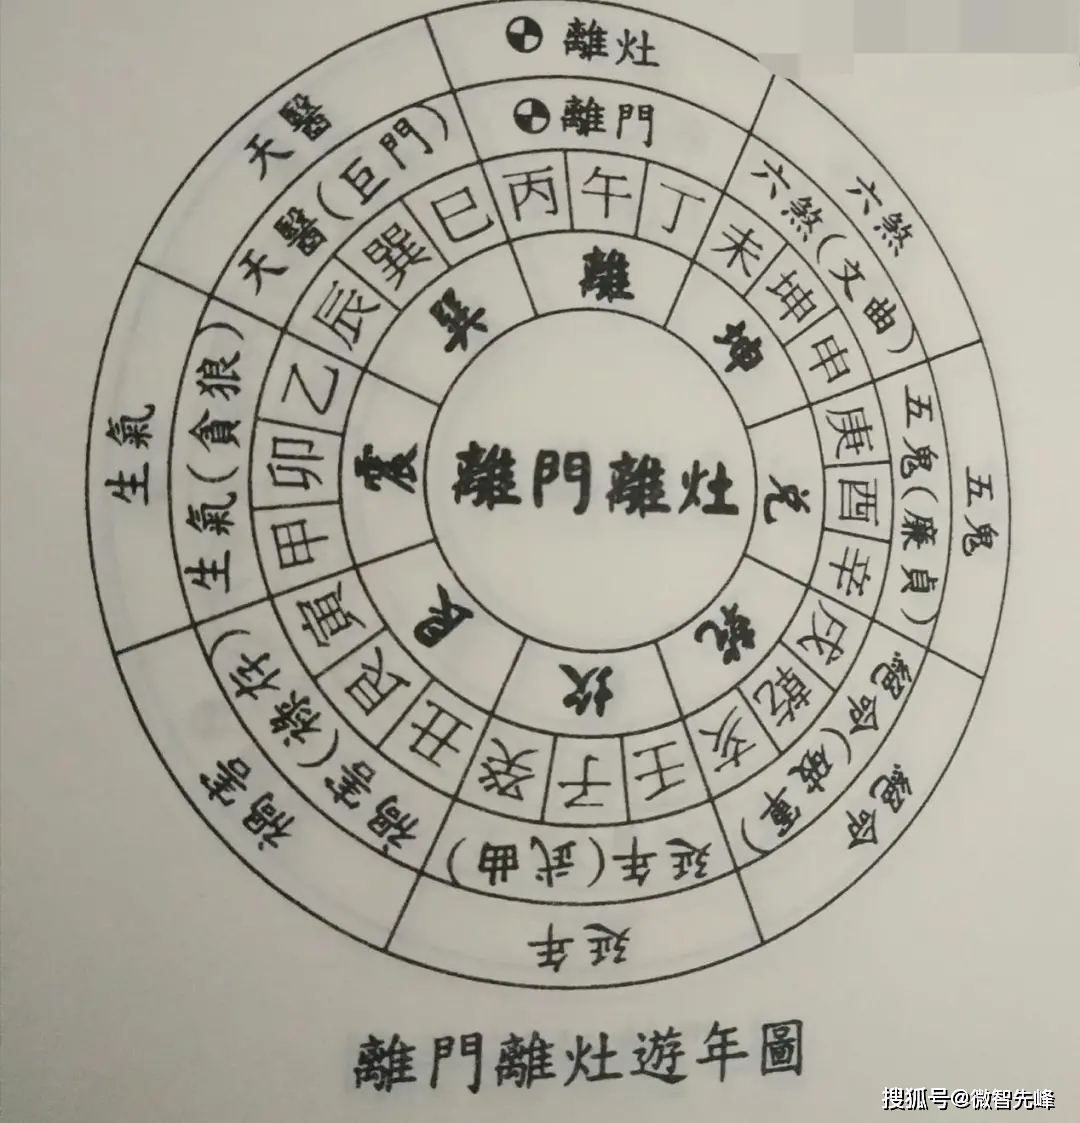 離灶
六煞
五鬼
絕命
延年
禍害
生氣
天醫
離門
六煞(文曲)
五鬼(廉貞)
絕命(破軍)
延年(武曲)
禍害(祿存)
生氣(貪狼)
天醫(巨門)
丙
午
丁
未
坤
申
庚
酉
辛
戌
乾
亥
壬
子
癸
丑
艮
寅
甲
卯
乙
辰
巽
巳
離
坤
兌
乾
坎
艮
震
巽
離門離灶
離門離灶遊年圖
搜狐号@微智先峰